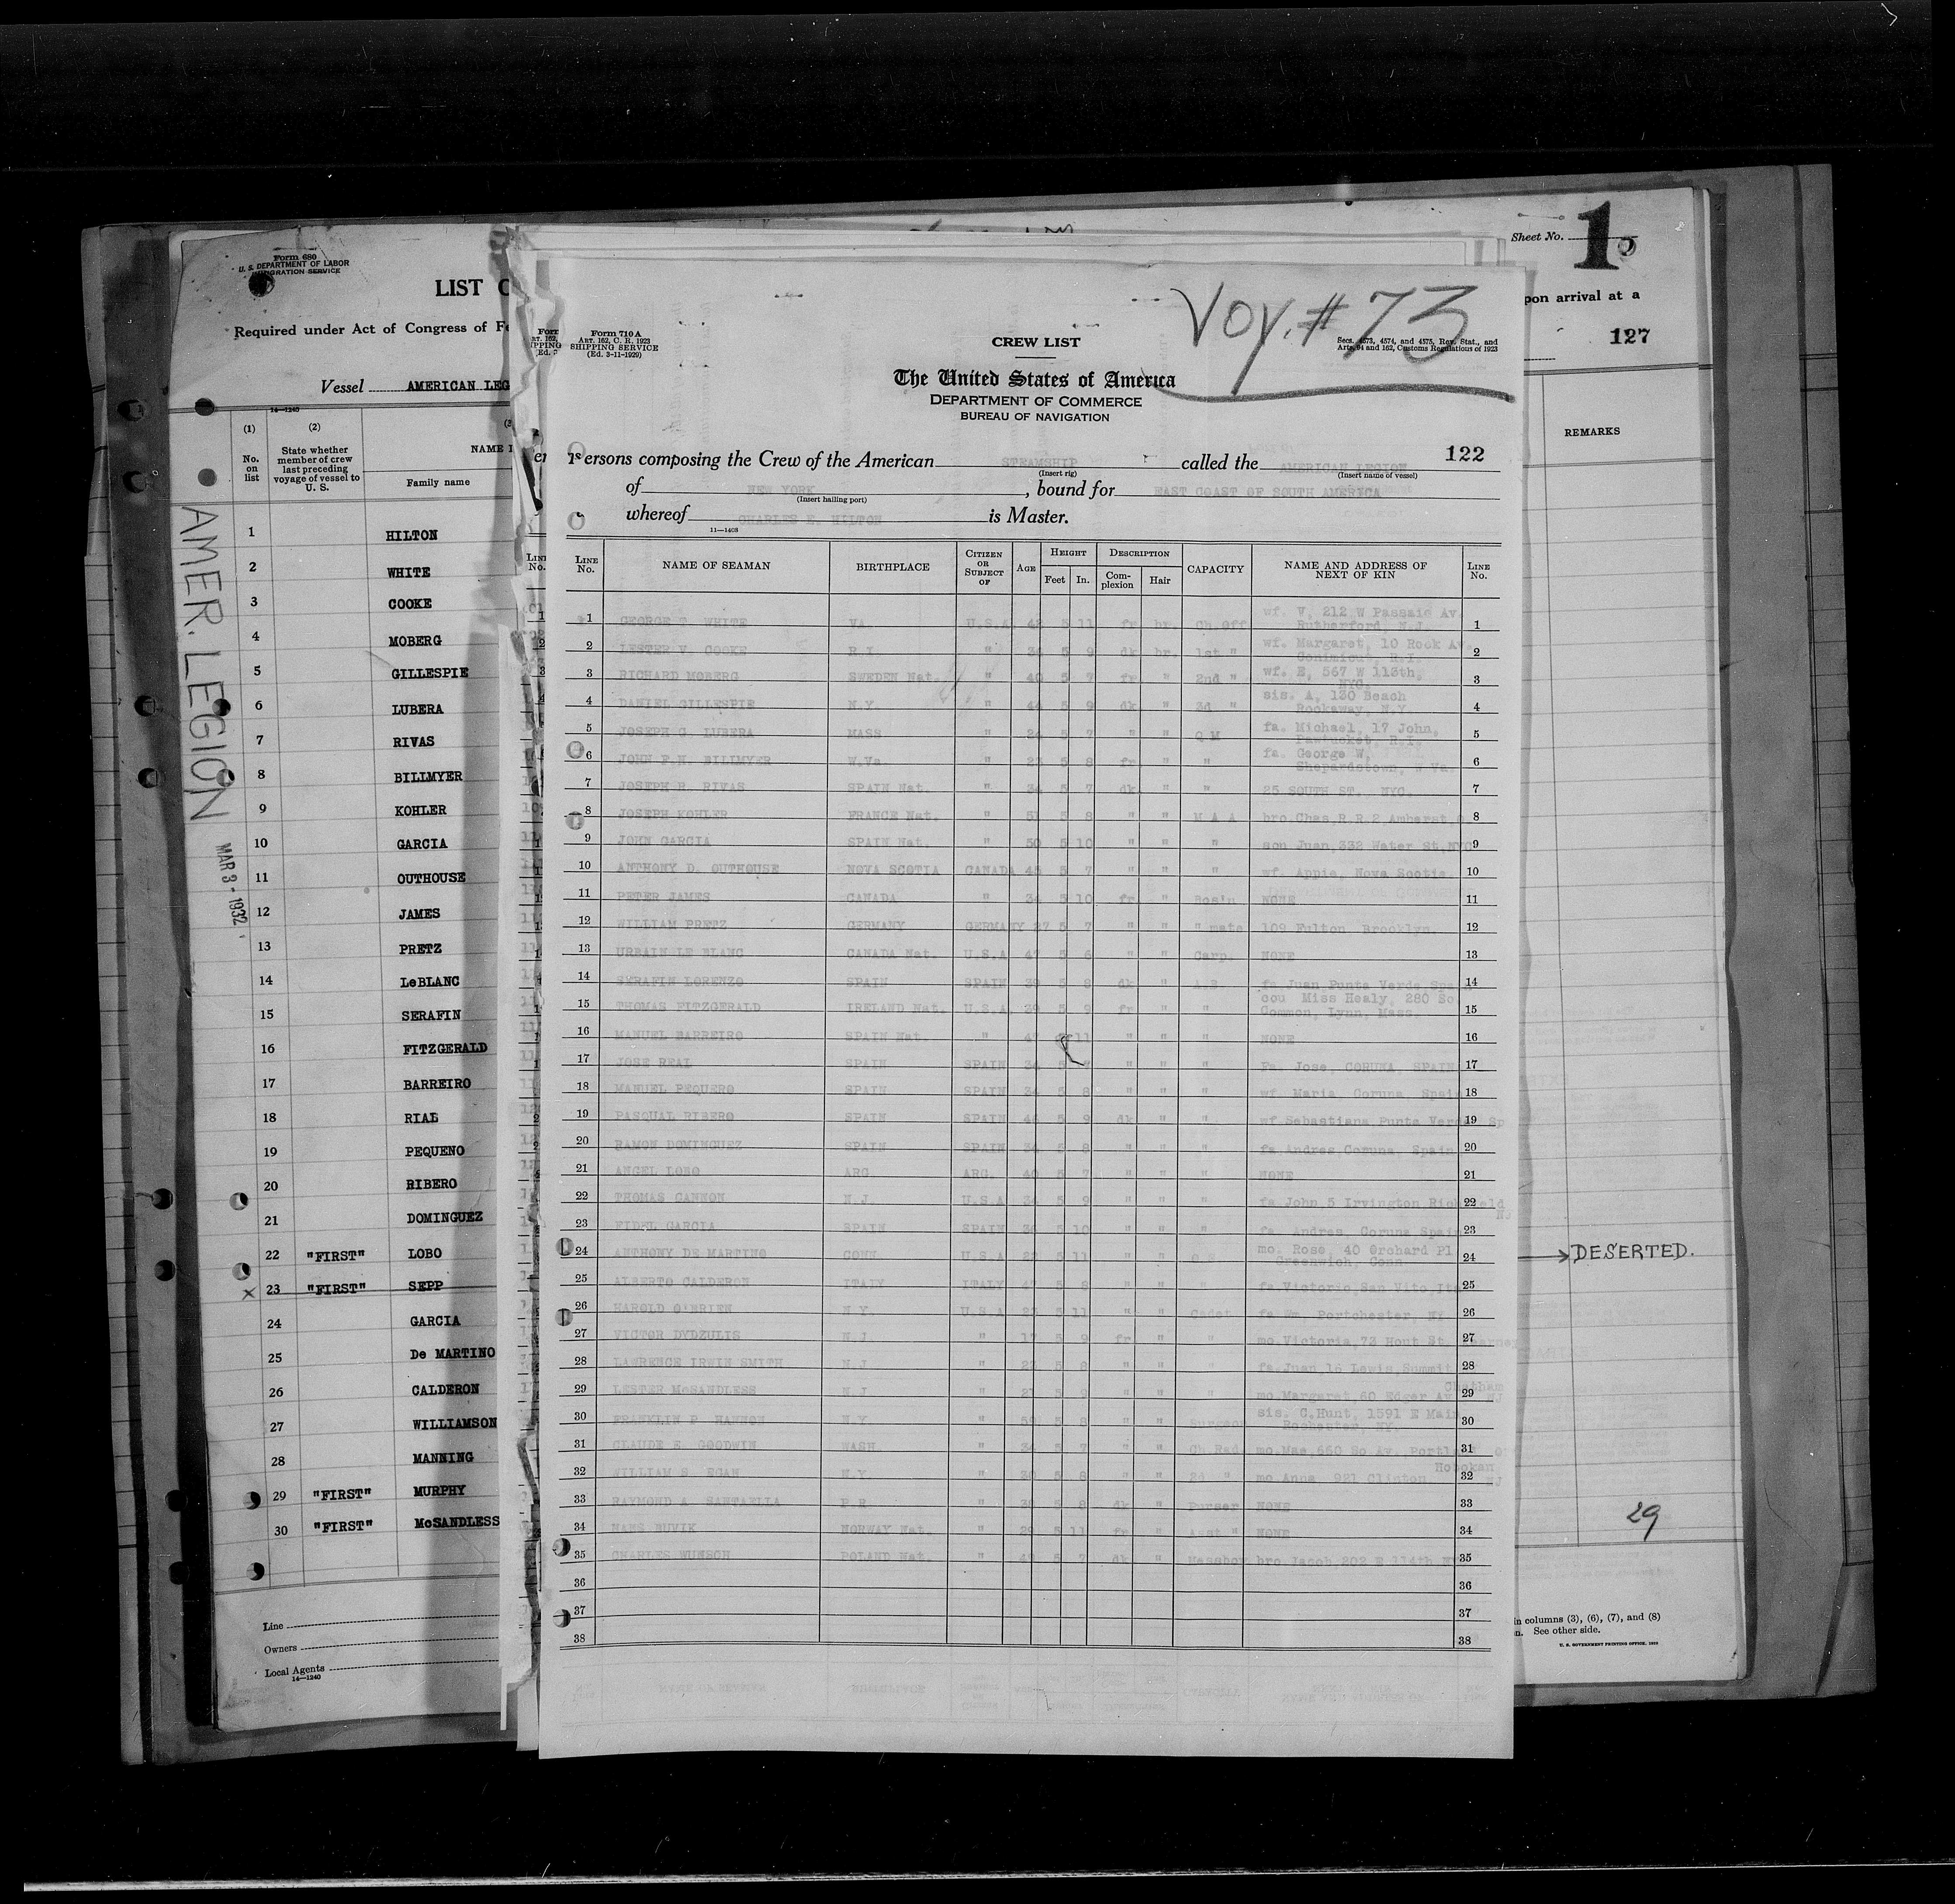 Form 680
U. S. DEPARTMENT OF LABOR
IMMIGRATION SERVICE
LIST
Required under Act of Congress of
Vessel AMERICAN LEG
14—1240
(1) (2)
No. on list
State whether member of crew last preceding voyage of vessel to U. S.
NAME
Family name
AMER. LEGION
MAR 3 - 1932
1 HILTON
2 WHITE
3 COOKE
4 MOBERG
5 GILLESPIE
6 LUBERA
7 RIVAS
8 BILLMYER
9 KOHLER
10 GARCIA
11 OUTHOUSE
12 JAMES
13 PRETZ
14 LeBLANC
15 SERAFIN
16 FITZGERALD
17 BARREIRO
18 RIAL
19 PEQUENO
20 RIBERO
21 DOMINGUEZ
22 "FIRST" LOBO
x 23 "FIRST" SEPP
24 GARCIA
25 De MARTINO
26 CALDERON
27 WILLIAMSON
28 MANNING
29 "FIRST" MURPHY
30 "FIRST" McSANDLESS
Line
Owners
Local Agents
14—1240
VOY. # 73
Form 710 A
ART. 162, C. R. 1923
SHIPPING SERVICE
(Ed. 3-11-1929)
CREW LIST
Secs. 4573, 4574, and 4575, Rev. Stat., and
Arts. 94 and 162, Customs Regulations of 1923
The United States of America
DEPARTMENT OF COMMERCE
BUREAU OF NAVIGATION
122
Persons composing the Crew of the American STEAMSHIP called the AMERICAN LEGION
(Insert rig) (Insert name of vessel)
of NEW YORK, bound for EAST COAST OF SOUTH AMERICA
(Insert hailing port)
whereof CHARLES E. HILTON is Master.
11—1408
LINE No. NAME OF SEAMAN BIRTHPLACE CITIZEN OR SUBJECT OF AGE HEIGHT Feet In. DESCRIPTION Complexion Hair CAPACITY NAME AND ADDRESS OF NEXT OF KIN LINE No.
1 GEORGE T. WHITE VA. U.S.A 5 11 fr br. Ch.Off wf. V, 212 W Passaic Av. Rutherford, N.J. 1
2 LESTER V. COOKE R.I. " 5 9 dk br. 1st " wf. Margaret, 10 Rock Av 2
3 RICHARD MOBERG SWEDEN Nat. " 40 5 7 fr " 2nd " wf. E, 567 W 113th, NYC. 3
4 DANIEL GILLESPIE N.Y. " 44 5 9 dk " 3d " sis. A, 130 Beach Rockaway, N.Y. 4
5 JOSEPH G. LUBERA MASS " 24 5 7 " " Q M fa. Michael, 17 John, Pawtucket, R.I. 5
6 JOHN F.H. BILLMYER W.Va. " 23 5 8 fr " " fa. George W, Shepardstown, W Va. 6
7 JOSEPH R. RIVAS SPAIN Nat. " 34 5 7 dk " " 25 SOUTH ST. NYC. 7
8 JOSEPH KOHLER FRANCE Nat. " 51 5 8 " " M A A bro.Chas,R.R.2 Amherst, 8
9 JOHN GARCIA SPAIN Nat " 50 5 10 " " " son Juan,332 Water St,NYC 9
10 ANTHONY D. OUTHOUSE NOVA SCOTIA CANADA 45 5 7 " " " wf. Appie, Nova Scotia 10
11 PETER JAMES CANADA " 34 5 10 fr " Bos'n NONE 11
12 WILLIAM PRETZ GERMANY GERMANY 27 5 7 " " " mate 109 Fulton, Brooklyn. 12
13 URBAIN LE BLANC CANADA Nat. U.S.A 47 5 6 " " Carp. NONE 13
14 SERAFIN LORENZO SPAIN SPAIN 39 5 8 dk " A.B. fa Juan Punta Verde Spa 14
15 THOMAS FITZGERALD IRELAND Nat. U.S.A. 29 5 9 fr " " cou Miss Healy, 280 So Common, Lynn, Mass. 15
16 MANUEL BARREIRO SPAIN Nat. " 47 11 " " " NONE 16
17 JOSE REAL SPAIN SPAIN 34 5 7 " " " Fa. Jose, CORUNA, SPAIN 17
18 MANUEL PEQUERO SPAIN SPAIN 34 5 8 " " " wf. Maria Coruna Spain 18
19 PASQUAL RIBERO SPAIN SPAIN 44 5 9 dk " " wf.Sebastiana Punta Verde Sp 19
20 RAMON DOMINGUEZ SPAIN SPAIN 34 5 8 " " " fa Andres Coruna, Spain 20
21 ANGEL LOBO ARG ARG. 40 5 7 " " " NONE 21
22 THOMAS CANNON N.J. U.S.A 34 5 9 " " " fa John,5 Irvington 22
23 FIDEL GARCIA SPAIN SPAIN 36 5 10 " " " fa Andres, Coruna Spain 23
24 ANTHONY DE MARTINO CONN U.S.A 22 5 11 " " O S mo. Rose, 40 Orchard Pl Greenwich, Conn 24
25 ALBERTO CALDERON ITALY ITALY 47 5 8 " " " fa.Victorio,San Vito,Ita 25
26 HAROLD O'BRIEN N.Y. U.S.A 23 5 11 " " Cadet fa Wm. Portchester, NY 26
27 VICTOR DYDZULIS N.J. " 17 5 9 fr " " mo.Victoria,73 Hont St. 27
28 LAWRENCE IRWIN SMITH N.J. " 22 5 8 " " " fa.Juan,16 Lewis,Summit 28
29 LESTER McSANDLESS N.J " 21 5 9 " " " mo.Margaret 60 Edger Av Chatham NJ 29
30 FRANKLIN P. HANNON N.Y. " 59 5 8 " " Surgeon sis. C.Hunt, 1591 E Main Rochester, NY. 30
31 CLAUDE E. GOODWIN WASH " 24 5 7 " " Ch.Rad. mo.Mae,660 So Av. Portland 31
32 WILLIAM S EGAN N.Y. " 30 5 8 " " 2d " mo Anna 921 Clinton Hoboken NJ 32
33 RAYMOND A SANTAELLA P.R. " 5 8 dk " Purser NONE 33
34 HANS BUVIK NORWAY Nat " 29 5 11 fr " Asst " NONE 34
35 CHARLES WUNSCH POLAND Nat. " 5 7 dk " Messboy bro Jacob,202 E 114th NY 35
36 36
37 37
38 38
Sheet No. 1
pon arrival at a
127
REMARKS
→ DESERTED.
29
in columns (3), (6), (7), and (8)
n. See other side.
U. S. GOVERNMENT PRINTING OFFICE